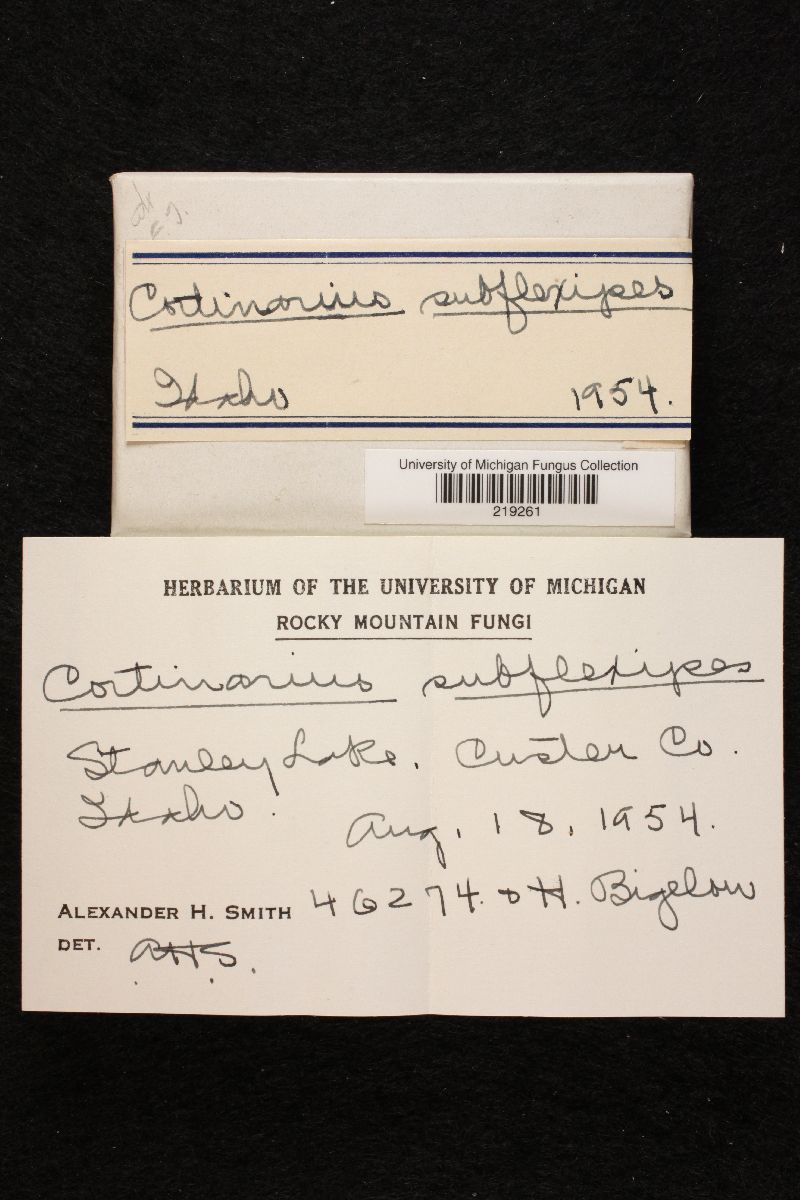 Cortinarius subflexipes
Idaho 1954.
University of Michigan Fungus Collection
219261
HERBARIUM OF THE UNIVERSITY OF MICHIGAN
ROCKY MOUNTAIN FUNGI
Cortinarius subflexipes
Stanley Lake, Custer Co.
Idaho.
Aug, 18, 1954.
ALEXANDER H. SMITH 46274. & H. Bigelow
DET. AHS.